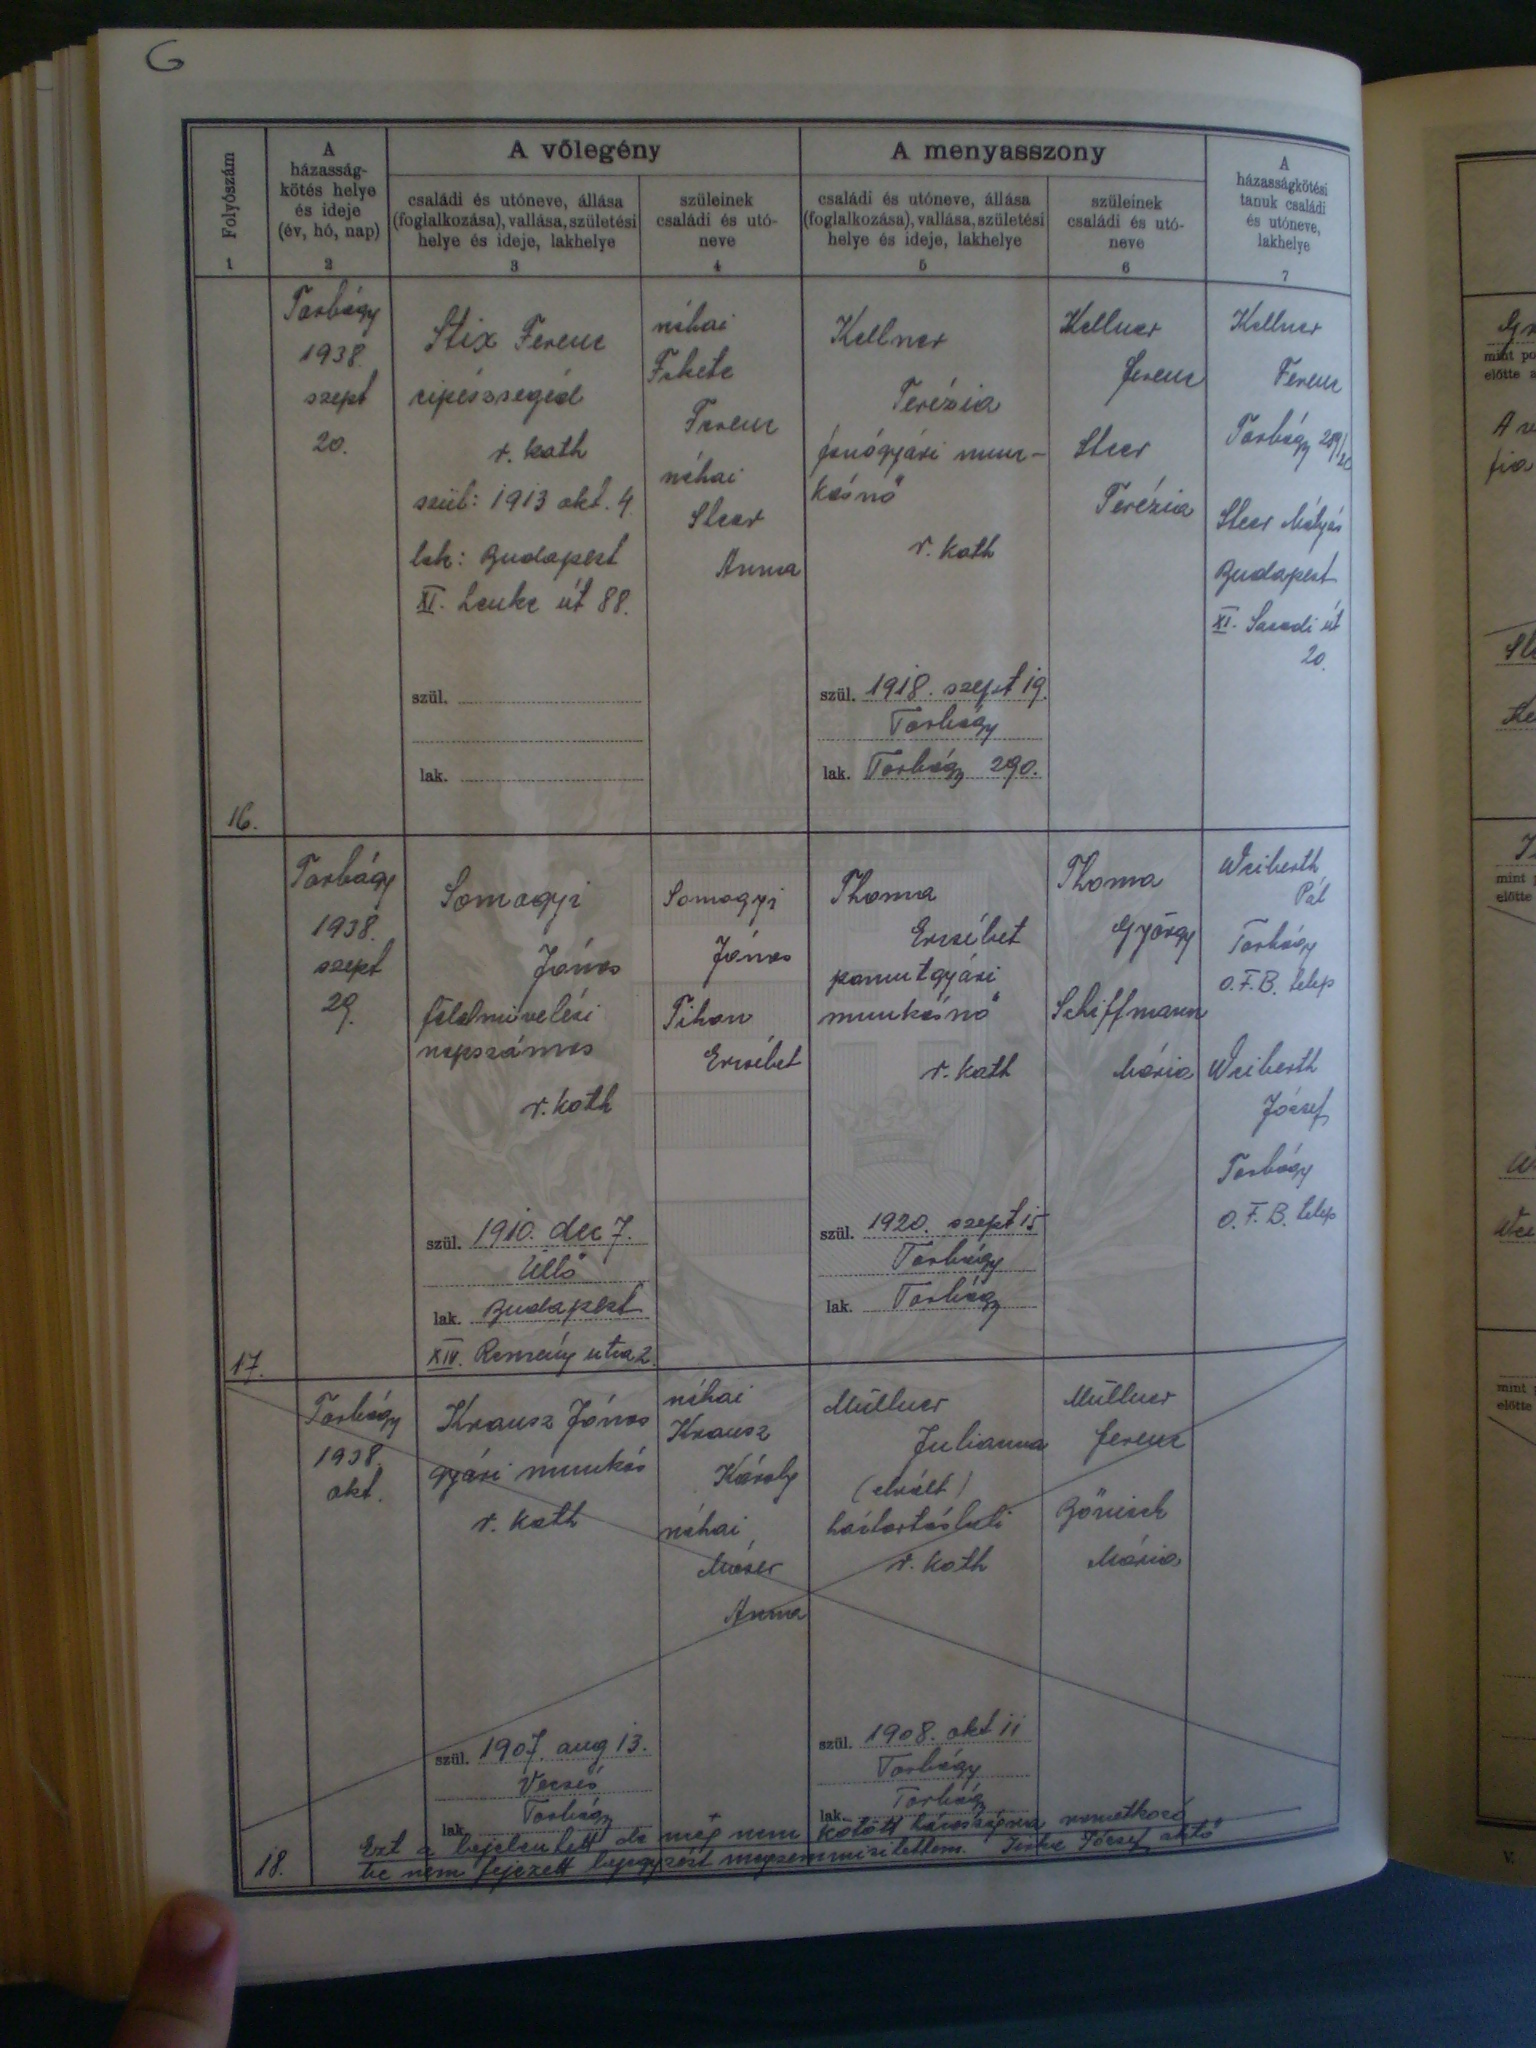 G
Folyószám
1
A
házasság-
kötés helye
és ideje
(év, hó, nap)
2
A vőlegény
családi és utóneve, állása
(foglalkozása), vallása, születési
helye és ideje, lakhelye
3
szüleinek
családi és utó-
neve
4
A menyasszony
családi és utóneve, állása
(foglalkozása), vallása, születési
helye és ideje, lakhelye
5
szüleinek
családi és utó-
neve
6
A
házasságkötési
tanuk családi
és utóneve,
lakhelye
7
16.
Torbágy
1938.
szept
20.
Stix Ferenc
cipészsegéd
r. kath
szül: 1913 okt. 4.
lak: Budapest
XI. Lenke út 88.
szül.
lak.
néhai
Fekete
Ferenc
néhai
Steer
Anna
Kellner
Terézia
fonógyári mun-
kásnő
r. kath
szül. 1918. szept 19.
Torbágy
lak. Torbágy 290.
Kellner
Ferenc
Steer
Terézia
Kellner
Ferenc
Torbágy
Steer Mátyás
Budapest
XI. Sasadi út
20.
17.
Torbágy
1938.
szept
29.
Somogyi
János
földmüvelési
napszámos
r. kath
szül. 1910. dec 7.
Üllő
lak. Budapest
XIV. Remény utca 2.
Somogyi
János
Tihon
Erzsébet
Thoma
Erzsébet
pamutgyári
munkásnő
r. kath
szül. 1920. szept 15
Torbágy
lak. Torbágy
Thoma
György
Schiffmann
Mária
Weiberth
Pál
Torbágy
O.F.B. telep
Weiberth
József
Torbágy
O.F.B. telep
18.
Torbágy
1938.
okt.
Krausz János
gyári munkás
r. kath
szül. 1907. aug 13.
Vecsés
lak. Torbágy
néhai
Krausz
Károly
néhai
Anna
Müllner
Julianna
(elvált)
háztartásbeli
r. kath
szül. 1908. okt 11
Torbágy
lak. Torbágy
Müllner
Ferenc
Bönisch
Mária
Ezt a bejelentett de még nem kötött házasságra vonatkozó
be nem fejezett bejegyzést megsemmisítettem. József
mint
előtte
mint
előtte
mint
előtte
V.